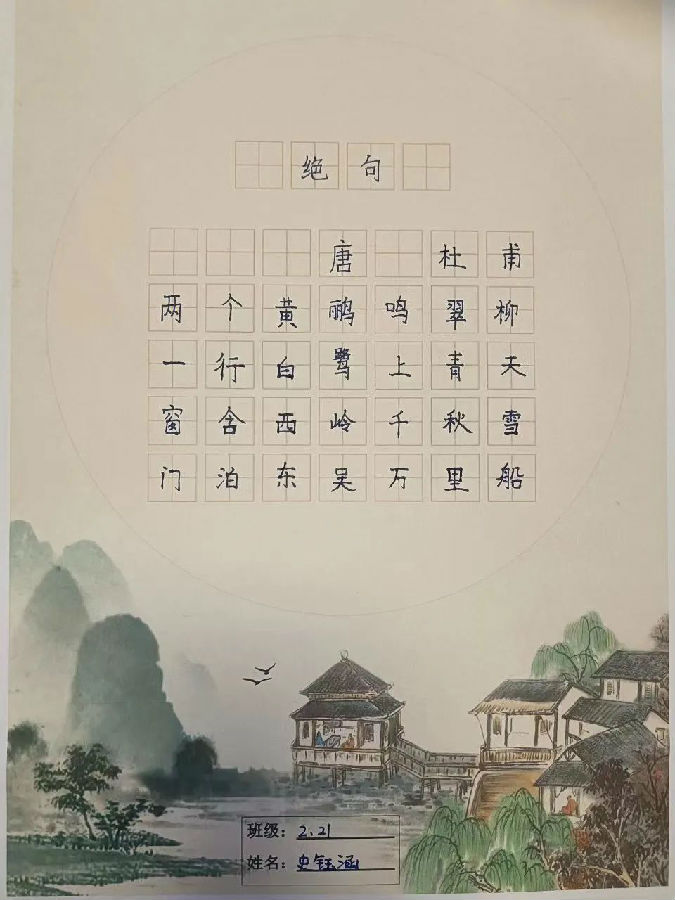 绝句
唐 杜甫
两个黄鹂鸣翠柳
一行白鹭上青天
窗含西岭千秋雪
门泊东吴万里船
班级：2.21
姓名：史钰涵